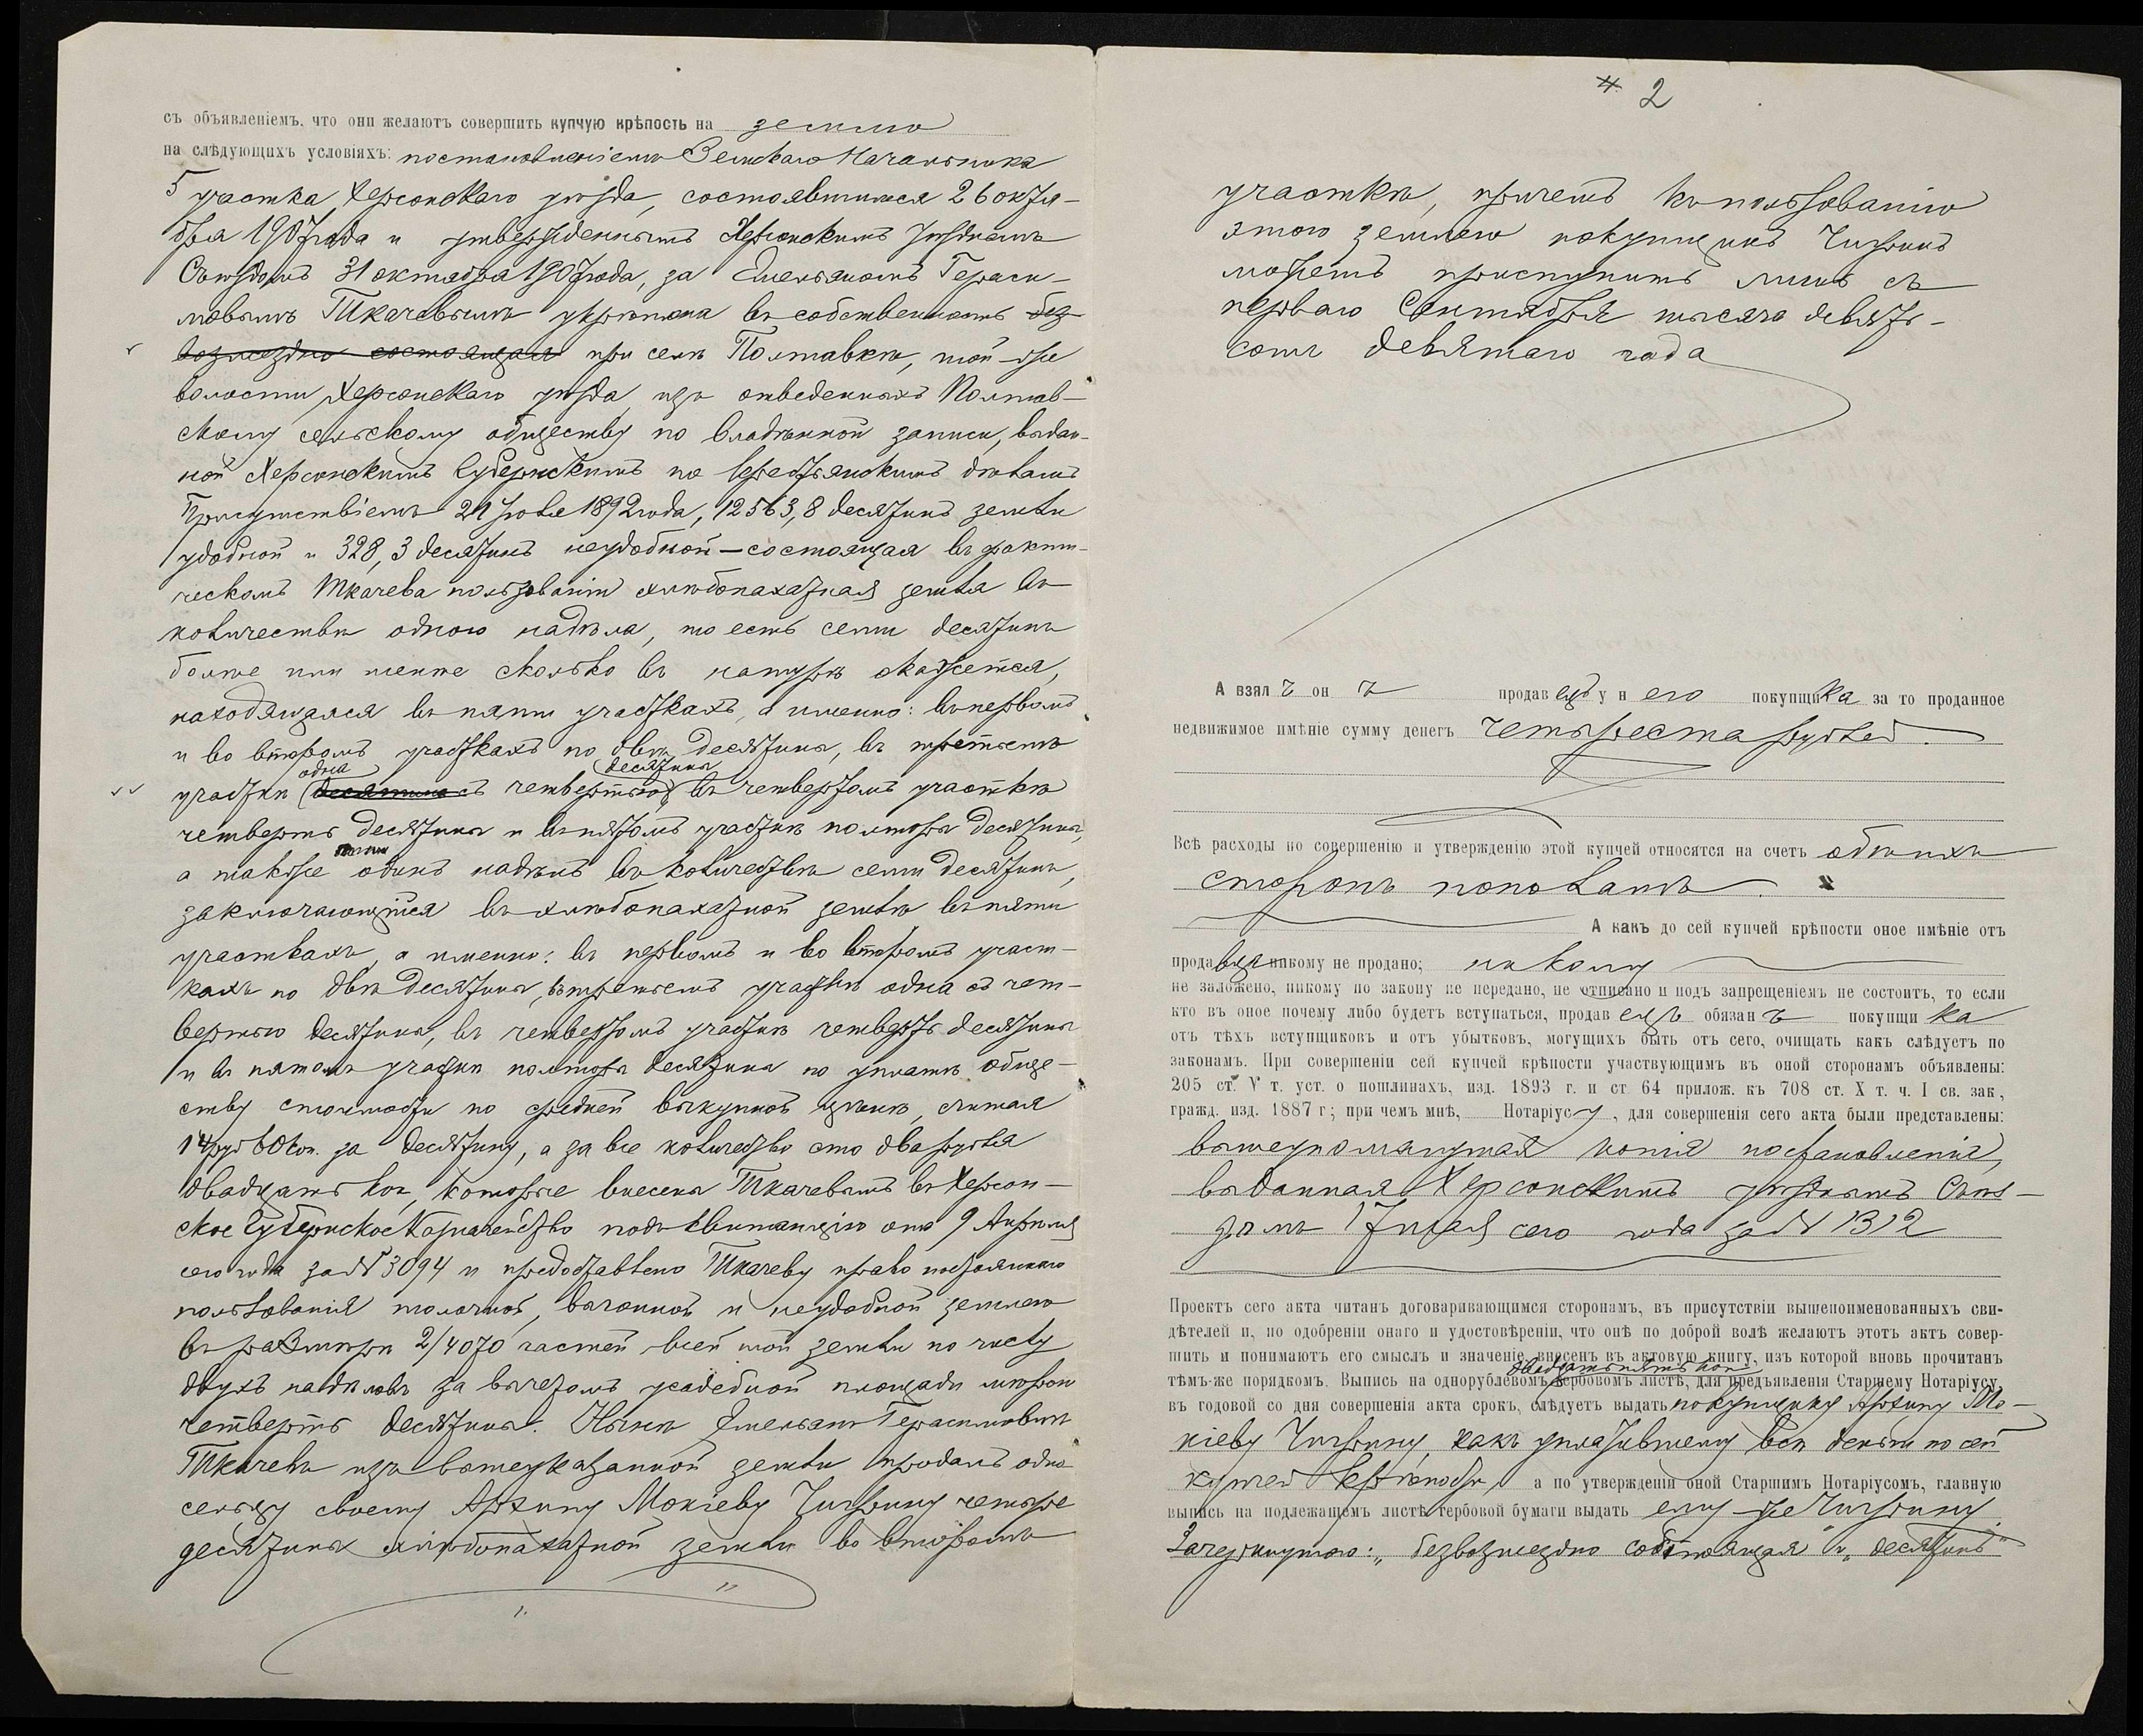 съ объявленіемъ, что они желаютъ совершить купчую крѣпость на землю
на слѣдующихъ условіяхъ: постановленіемъ Земскаго Начальника
5 участка Херсонскаго уѣзда, состоявшимся 26 октя-
бря 1907 года и утвержденнымъ Херсонскимъ Уѣзднымъ
Съѣздомъ 31 октября 1907 года, за Емельяномъ Гераси-
мовымъ Ткачевымъ укрѣплена въ собственность без-
возмездно состоящая при селѣ Полтавкѣ, той-же
волости Херсонскаго уѣзда изъ отведенныхъ Полтав-
скому сельскому обществу по владѣнной записи, выдан-
ной Херсонскимъ Губернскимъ по крестьянскимъ дѣламъ
Присутствіемъ 21 1892 года, 12563,8 десятинъ земли
удобной и 328,3 десятинъ неудобной - состоящая въ факти-
ческомъ Ткачева пользованіи хлѣбопахатная земля въ
количествѣ одного надѣла, то есть семи десятинъ
болѣе или менѣе сколько въ натурѣ окажется,
находящаяся въ пяти участкахъ, а именно: въ первомъ
и во второмъ участкахъ по двѣ десятины, въ третьемъ
одна десятина
участкѣ (десятина съ четвертью) въ четвертомъ участкѣ
четверть десятины и въ пятомъ участкѣ полторы десятины,
а также одинъ надѣлъ въ количествѣ семи десятинъ,
заключающійся въ хлѣбопахатной землѣ въ пяти
участкахъ, а именно: въ первомъ и во второмъ участ-
кахъ по двѣ десятины, въ третьемъ участкѣ одна съ чет-
вертью десятина, въ четвертомъ участкѣ четверть десятины
и въ пятомъ участкѣ полторы десятины по уплатѣ обще-
ству стоимости по средней выкупной цѣнѣ, считая
14 руб 60 коп. за десятину, а за все количество сто два рубля
двадцать коп, которые внесены Ткачевымъ въ Херсон-
ское Губернское Казначейство подъ квитанцію отъ 9 Апрѣля
сего года за № 3094 и предоставлено Ткачеву право постояннаго
пользованія толочной, выгонной и неудобной землею
въ размѣрѣ 2/4070 частей всей той земли по числу
двухъ надѣловъ за вычетомъ усадебной площади
четверть десятины. Нынѣ Емельянъ Герасимовъ
Ткачевъ изъ вышеуказанной земли продалъ одно-
сельцу своему Архипу Мокіеву Чигрину четыре
десятины хлѣбопахатной земли во второмъ
2
участкѣ, причемъ къ пользованію
этою землею покупщикъ Чигринъ
можетъ приступить лишь съ
перваго Сентября тысяча девять-
сотъ девятаго года
А взялъ онъ продавецъ у н его покупщика за то проданное
недвижимое имѣніе сумму денегъ четыреста рублей.
Всѣ расходы по совершенію и утвержденію этой купчей относятся на счетъ обѣихъ
сторонъ пополамъ.
А какъ до сей купчей крѣпости оное имѣніе отъ
продавца никому не продано; никому
не заложено, никому по закону не передано, не отписано и подъ запрещеніемъ не состоитъ, то если
кто въ оное почему либо будетъ вступаться, продавецъ обязанъ покупщика
отъ тѣхъ вступщиковъ и отъ убытковъ, могущихъ быть отъ сего, очищать какъ слѣдуетъ по
законамъ. При совершеніи сей купчей крѣпости участвующимъ въ оной сторонамъ объявлены:
205 ст. V т. уст. о пошлинахъ, изд. 1893 г. и ст 64 прилож. къ 708 ст. X т. ч. I св. зак,
гражд. изд. 1887 г; при чемъ мнѣ, Нотаріусу, для совершенія сего акта были представлены:
вышеупомянутая копія постановленія,
выданная Херсонскимъ уѣзднымъ Съѣз-
домъ 17 сего года за № 1312
Проектъ сего акта читанъ договаривающимся сторонамъ, въ присутствіи вышепоименованныхъ сви-
дѣтелей и, по одобреніи онаго и удостовѣреніи, что онѣ по доброй волѣ желаютъ этотъ актъ совер-
шить и понимаютъ его смыслъ и значеніе, внесенъ въ актовую книгу, изъ которой вновь прочитанъ
двадцатипяти коп
тѣмъ-же порядкомъ. Выпись на однорублевомъ гербовомъ листѣ, для предъявленія Старшему Нотаріусу,
въ годовой со дня совершенія акта срокъ, слѣдуетъ выдать покупщику Архипу Мо-
кіеву Чигрину, какъ уплатившему всѣ деньги по сей
купчей крѣпости, а по утвержденіи оной Старшимъ Нотаріусомъ, главную
выпись на подлежащемъ листѣ гербовой бумаги выдать ему же Чигрину.
Зачеркнутое: "безвозмездно состоящая" и "десятинъ"